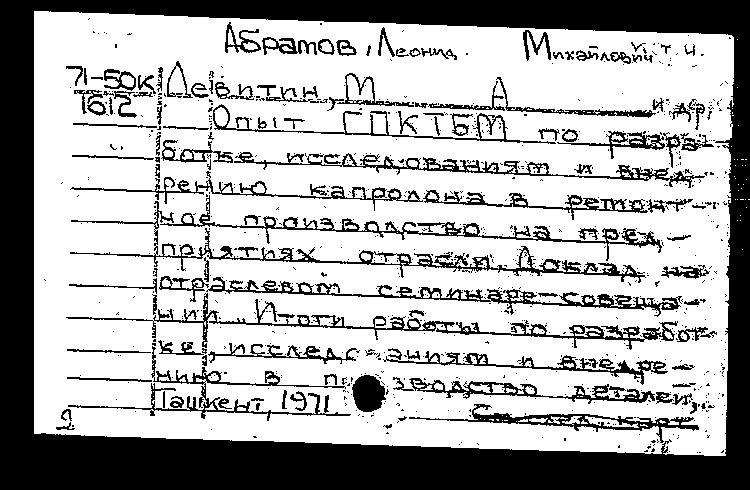 Абрамов, Леонид Михайлович и т.ч.
71-50К Левитин, М А и др.
1612
Опыт ГПКТБМ по разра-
ботке, исследованиям и внед-
рению капролона в ремонт-
ное производство на пред-
приятиях отрасли. Доклад на
отраслевом семинаре-совеща-
нии „Итоги работы по разработ-
ке, исследованиям и внедре-
нию в производство деталей,
Ташкент, 1971 См. след. карт